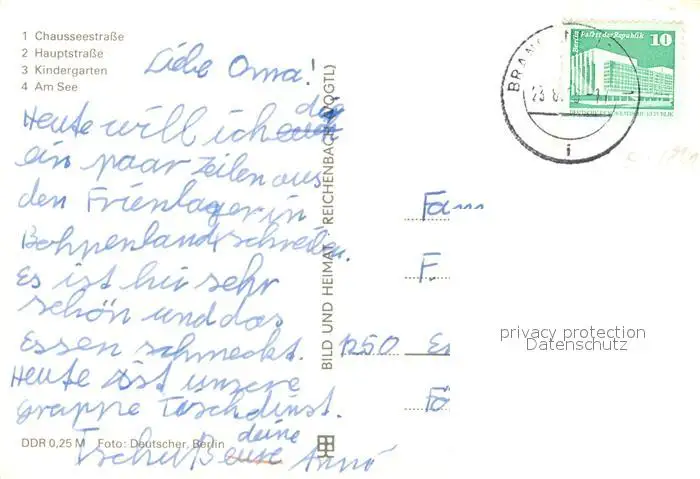 1 Chausseestraße
2 Hauptstraße
3 Kindergarten
4 Am See
Liebe Oma!
Heute will ich dag
ein paar Zeilen aus
den Frienlager in
Bohnenland schreiben.
Es ist hir sehr
schön und das
Essen schmeckt.
Heute isst unsere
grappe Tischdinst.
Tschuß eure deine Anne
DDR 0,25 M Foto: Deutscher, Berlin
BILD UND HEIMAT REICHENBACH (VOGTL)
Berlin Palast der Republik 10
DEUTSCHE DEMOKRATISCHE REPUBLIK
BRAN
23.8.
i
Fam
F.
1250 Er
privacy protection
Datenschutz